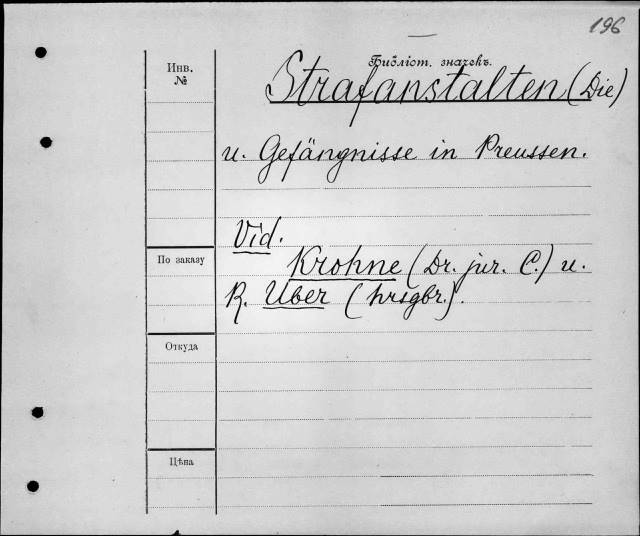 196
Библіот. значекъ.
Инв.
№
Strafanstalten (Die)
u. Gefängnisse in Preussen.
Vid.
По заказу
Krohne (Dr. jur. C.) u.
R. Uber (hrsgbr.).
Откуда
Цѣна